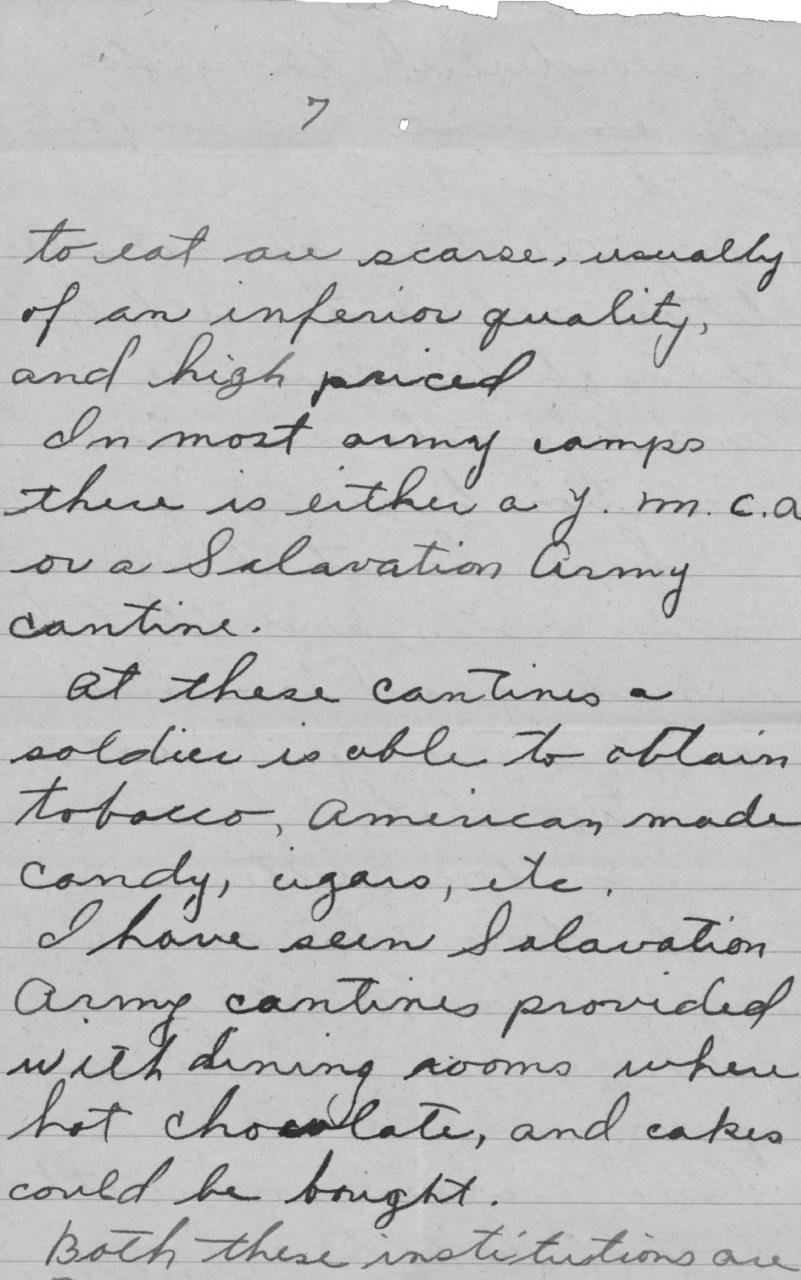 7
to eat are scarse, usually
of an inferior quality,
and high priced
In most army camps
there is either a Y. M. C. A
or a Salavation Army
cantine.
At these cantines a
soldier is able to obtain
tobacco, American made
candy, cigars, etc.
I have seen Salavation
Army cantines provided
with dining rooms where
hot chocolate, and cakes
could be bought.
Both these institutions are